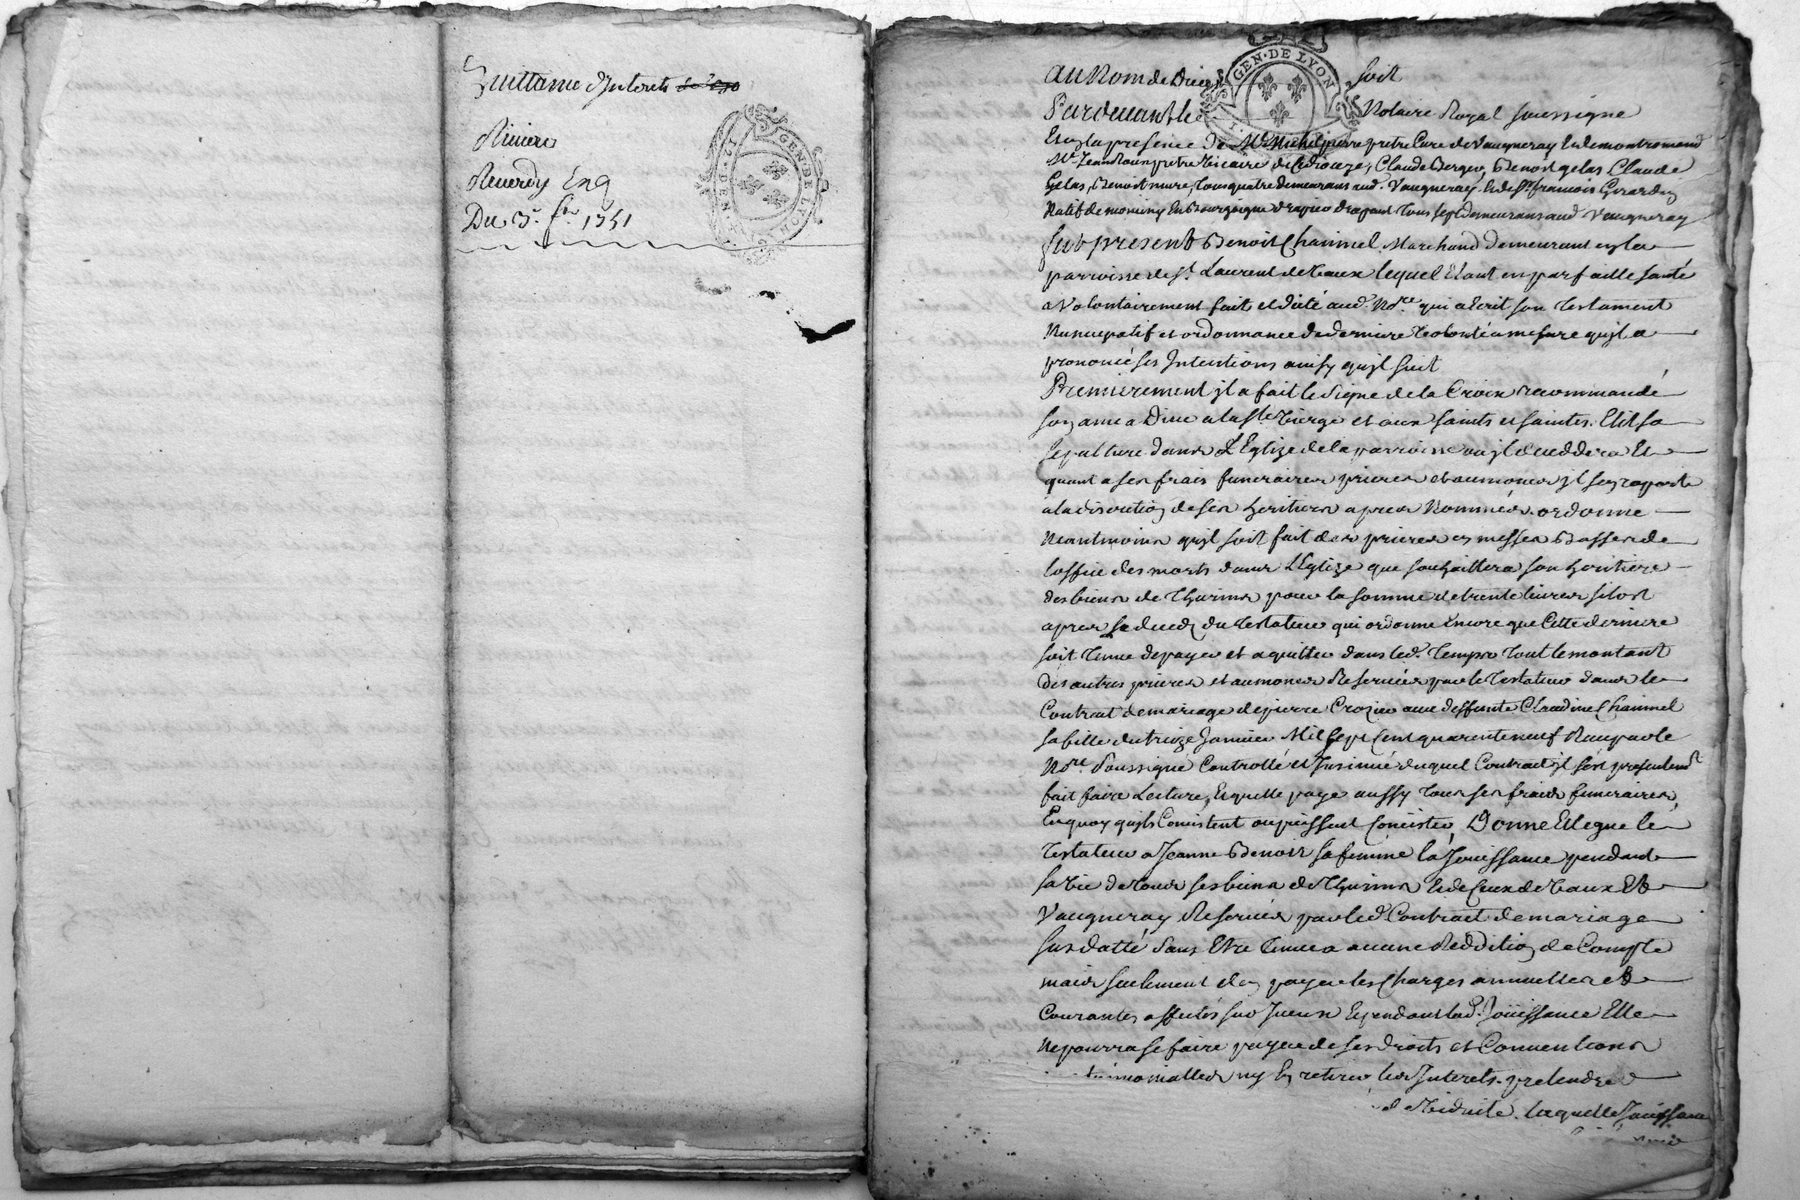 Quittance d'Interets
Riviere
Reverdy Eng
Du 3e. 1751
GEN·DE LYON
12 DEN
au Nom de Dieu soit
GEN·DE LYON
Pardevant le Notaire Royal soussigne
Et en la presence de Mre Michel pierre pretre Curé de Vaugneray Et de montromand
Mre Jean pretre Vicaire Claude Berger, Benoist gelas Claude
Gelas, Benoist mure, Tous quatre demeurans aud. Vaugneray. Et de Sr. francois Girardin
Natif de en Bourgoigne Tous sept demeurans aud Vaugneray
fut present Benoit Chaininel Marchand demeurant en la
parroisse de St. Laurent de Vaux lequel Etant en parfaitte santé
a Volontairement fait et dicté aud. Nore. qui a Ecrit son Testament
Nuncupatif et ordonnance de derniere Volonté a mesure qu'jl a
prononcé ses Intentions ainsy qu'jl suit
Premierement jl a fait le Signe de la Croix recommandé
son ame a Dieu a la Ste Vierge et aux saints et saintes. Elit sa
sepulture dans L'Eglize de la parroisse ou jl deceddera Et
quant a ses frais funeraires prieres et aumones jl s'en raporte
a la discretion de ses heritiers apres Nommés. ordonne
Neantmoins qu'jl soit fait des prieres en messes Basses de
l'office des morts dans L'Eglize que souhaittera son heritiere
des biens de Thurins pour la somme de trente livres sitost
apres le deced du Testateur qui ordonne Encore que Cette derniere
soit Tenue de payer et aquitter dans led. Temps Tout le montant
des autres prieres et aumones Reservées par le Testateur dans le
Contrat de mariage de pierre Crozier avec deffunte Claudine Chaininel
sa fille du treize Janvier Mil sept Cent quarente neuf Reçu par le
Nore. Soussigne Controllé et Insinué duquel Contrat jl s'est presentemt.
fait faire Lecture, Et quelle paye aussy tous ses fraix funeraires,
En quoy quils Consistent ou puissent Concister, Donne Et legue le
Testateur a Jeanne Benoit sa femme la Jouissance pendant
sa Vie de tous ses biens de Thurins Et de Ceux de Vaux Et
Vaugneray Reservés par led Contrat de mariage
sus datté sans Etre Tenue a aucune Reddition de Compte
mais seulement d'en payer les Charges annuelles et
Courantes affectés sur Iceux Et pendant lad. Joüissance Elle
ne pourra se faire payer de ses droits et Conventions
matrimonialles ny En retirer les Interets. pretendre
de Viduité. laquelle Jouissance